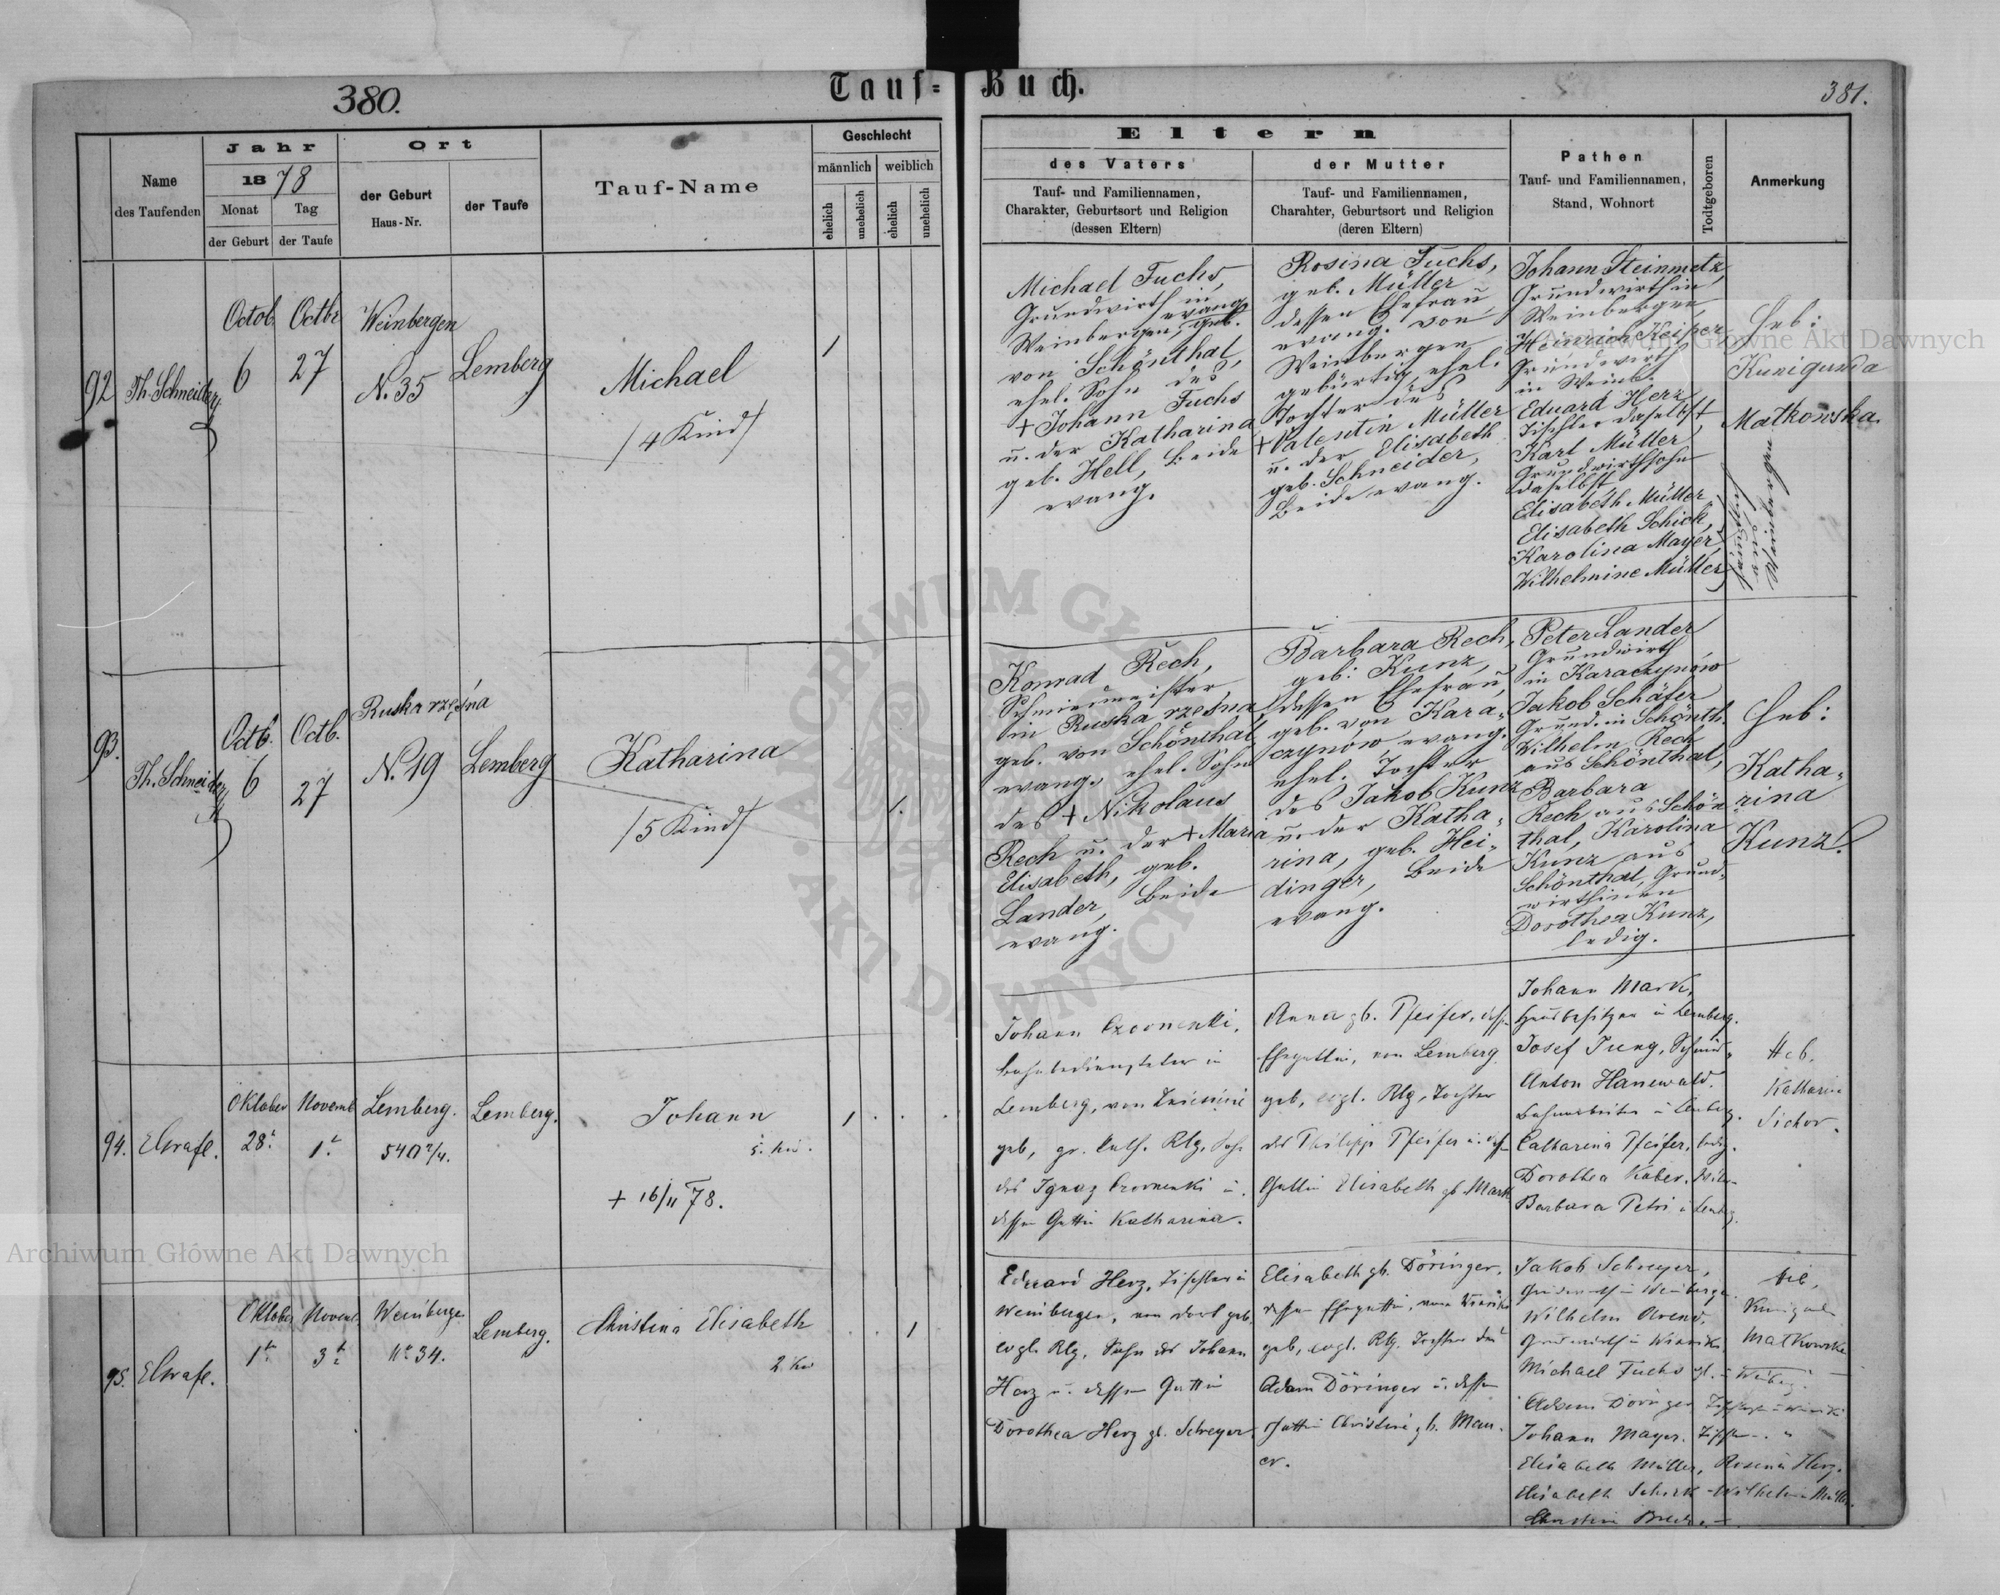 380.
Tauf-Buch.
381.
Name
des Taufenden
Jahr
1878
Monat
der Geburt
Tag
der Taufe
Ort
der Geburt
Haus-Nr.
der Taufe
Tauf-Name
Geschlecht
männlich
weiblich
ehelich
unehelich
ehelich
unehelich
Eltern
des Vaters
Tauf- und Familiennamen,
Charakter, Geburtsort und Religion
(dessen Eltern)
der Mutter
Tauf- und Familiennamen,
Charakter, Geburtsort und Religion
(deren Eltern)
Pathen
Tauf- und Familiennamen,
Stand, Wohnort
Todtgeboren
Anmerkung
92
Th. Schneider
Octob.
6
Octbr
27
Weinbergen
N. 35
Lemberg
Michael
/4 Kind/
1
Michael Fuchs,
Grundwirth in
Weinbergen, evang. geb.
von Schönthal,
ehel. Sohn des
+ Johann Fuchs
u. der Katharina
geb. Hell, beide
evang.
Rosina Fuchs,
geb. Müller
dessen Ehefrau
evang. von
Weinbergen
gebürtig, ehel.
Tochter des
+ Valentin Müller
u. der Elisabeth
geb. Schneider,
beide evang.
Johann Steinmetz
Grundwirth in
Weinbergen,
Heinrich Keiper
Grundwirth
in Weinb.
Eduard Herz
Tischler daselbst
Karl Müller
Grundwirthsohn
daselbst,
Elisabeth Müller
Elisabeth Schick,
Karolina Mayer,
Wilhelmine Müller
aus
Weinbergen
Heb:
Kunigunda
Matkowska.
93.
Th. Schneider
Octb.
6
Octb.
27
Ruska rzęsna
N. 19
Lemberg
Katharina
/5 Kind/
1.
Konrad Rech,
Schmiermeister
in Ruska rzęsna,
geb. von Schönthal,
evang. ehel. Sohn
des + Nikolaus
Rech u. der + Maria
Elisabeth, geb.
Lander, beide
evang.
Barbara Rech,
geb: Kunz,
dessen Ehefrau,
geb. von Kara-
czynów, evang.
ehel. Tochter
des Jakob Kunz
u. der Katha-
rina, geb. Hei-
dinger, beide
evang.
Peter Lander
Grundwirth
in Karaczynów
Jakob Schäfer
Grund. in Schönth.
Wilhelm Rech
aus Schönthal,
Barbara
Rech aus Schön
thal, Karolina
Kunz aus
Schönthal, Grund-
wirthinen
Dorothea Kunz,
ledig.
Heb:
Katha-
rina
Kunz.
94.
EGrafe.
Oktober
28t.
Novemb
1t.
Lemberg.
540 2/4.
Lemberg.
Johann
5. Kind.
+ 16/11 78.
1
Johann
Bahnbediensteter in
Lemberg, von
geb, gr. kath. Rlg, Sohn
des Ignaz Czornenki u.
dessen Gattin Katharina.
Anna gb. Pfeifer, dessen
Ehegattin, von Lemberg
geb, evgl. Rlg, Tochter
des Philipp Pfeifer u. dessen
Gattin Elisabeth gb Mark
Johann Mark,
Hausbesitzer in Lemberg.
Josef Jung, Schmied
Anton Hanewald.
Bahnarbeiter in Lemberg.
Catharina Pfeifer, ledig.
Dorothea Kaber,
Barbara Petri in Lemberg.
Heb.
Katharina
Sichor.
95.
EGrafe.
Oktober
1t.
Novemb.
3t.
Weinbergen
Nr. 34.
Lemberg.
Christina Elisabeth
2. Kind
1
Eduard Herz, Tischler in
Weinbergen, von dort geb.
evgl. Rlg, Sohn des Johann
Herz u. dessen Gattin
Dorothea Herz gb. Schreyer
Elisabeth gb. Döringer,
dessen Ehegattin, von
geb, evgl. Rlg. Tochter des
Adam Döringer u. dessen
Gattin Christine gb. Mau-
er.
Jakob Schreyer,
Grundwirth in Weinbergen.
Wilhelm Arend,
Grundwirth in
Michael Fuchs
Adam Döringer
Johann Mayer, Tischler
Elisabeth Müller, Rosina Herz.
Elisabeth Schick - Wilhelmine Müller.
Christine
Heb,
Kunigunde
Matkowska
Archiwum Główne Akt Dawnych
Archiwum Główne Akt Dawnych